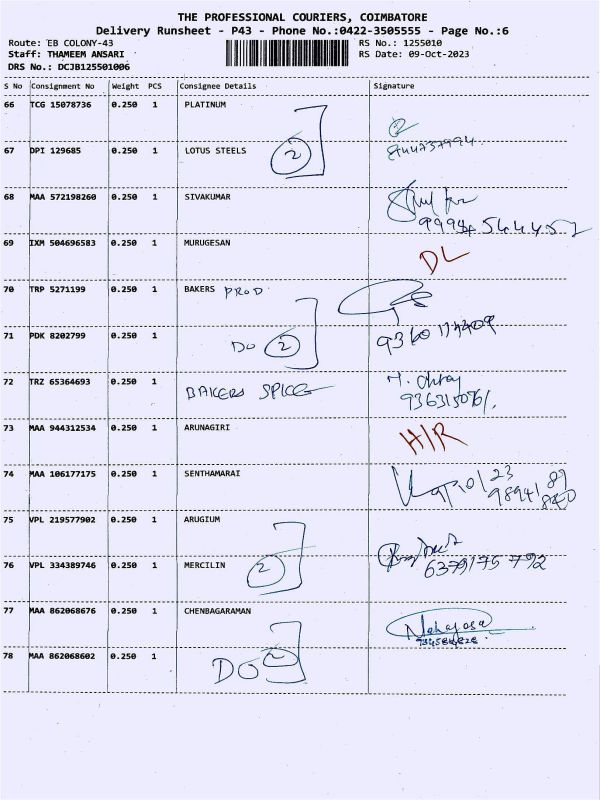 THE PROFESSIONAL COURIERS, COIMBATORE
Delivery Runsheet - P43 - Phone No.:0422-3505555 - Page No.:6
Route: EB COLONY-43 RS No.: 1255010
Staff: THAMEEM ANSARI RS Date: 09-Oct-2023
DRS No.: DCJB125501006
S No Consignment No Weight PCS Consignee Details Signature
66 TCG 15078736 0.250 1 PLATINUM
67 DPI 129685 0.250 1 LOTUS STEELS 2
68 MAA 572198260 0.250 1 SIVAKUMAR
69 IXM 504696583 0.250 1 MURUGESAN DL
70 TRP 5271199 0.250 1 BAKERS PROD
71 PDK 8202799 0.250 1 DO 2
72 TRZ 65364693 0.250 1 BAKERS SPICE
73 MAA 944312534 0.250 1 ARUNAGIRI H/R
74 MAA 106177175 0.250 1 SENTHAMARAI
75 VPL 219577902 0.250 1 ARUGIUM
76 VPL 334389746 0.250 1 MERCILIN 2 6379175792
77 MAA 862068676 0.250 1 CHENBAGARAMAN
78 MAA 862068602 0.250 1 DO 2